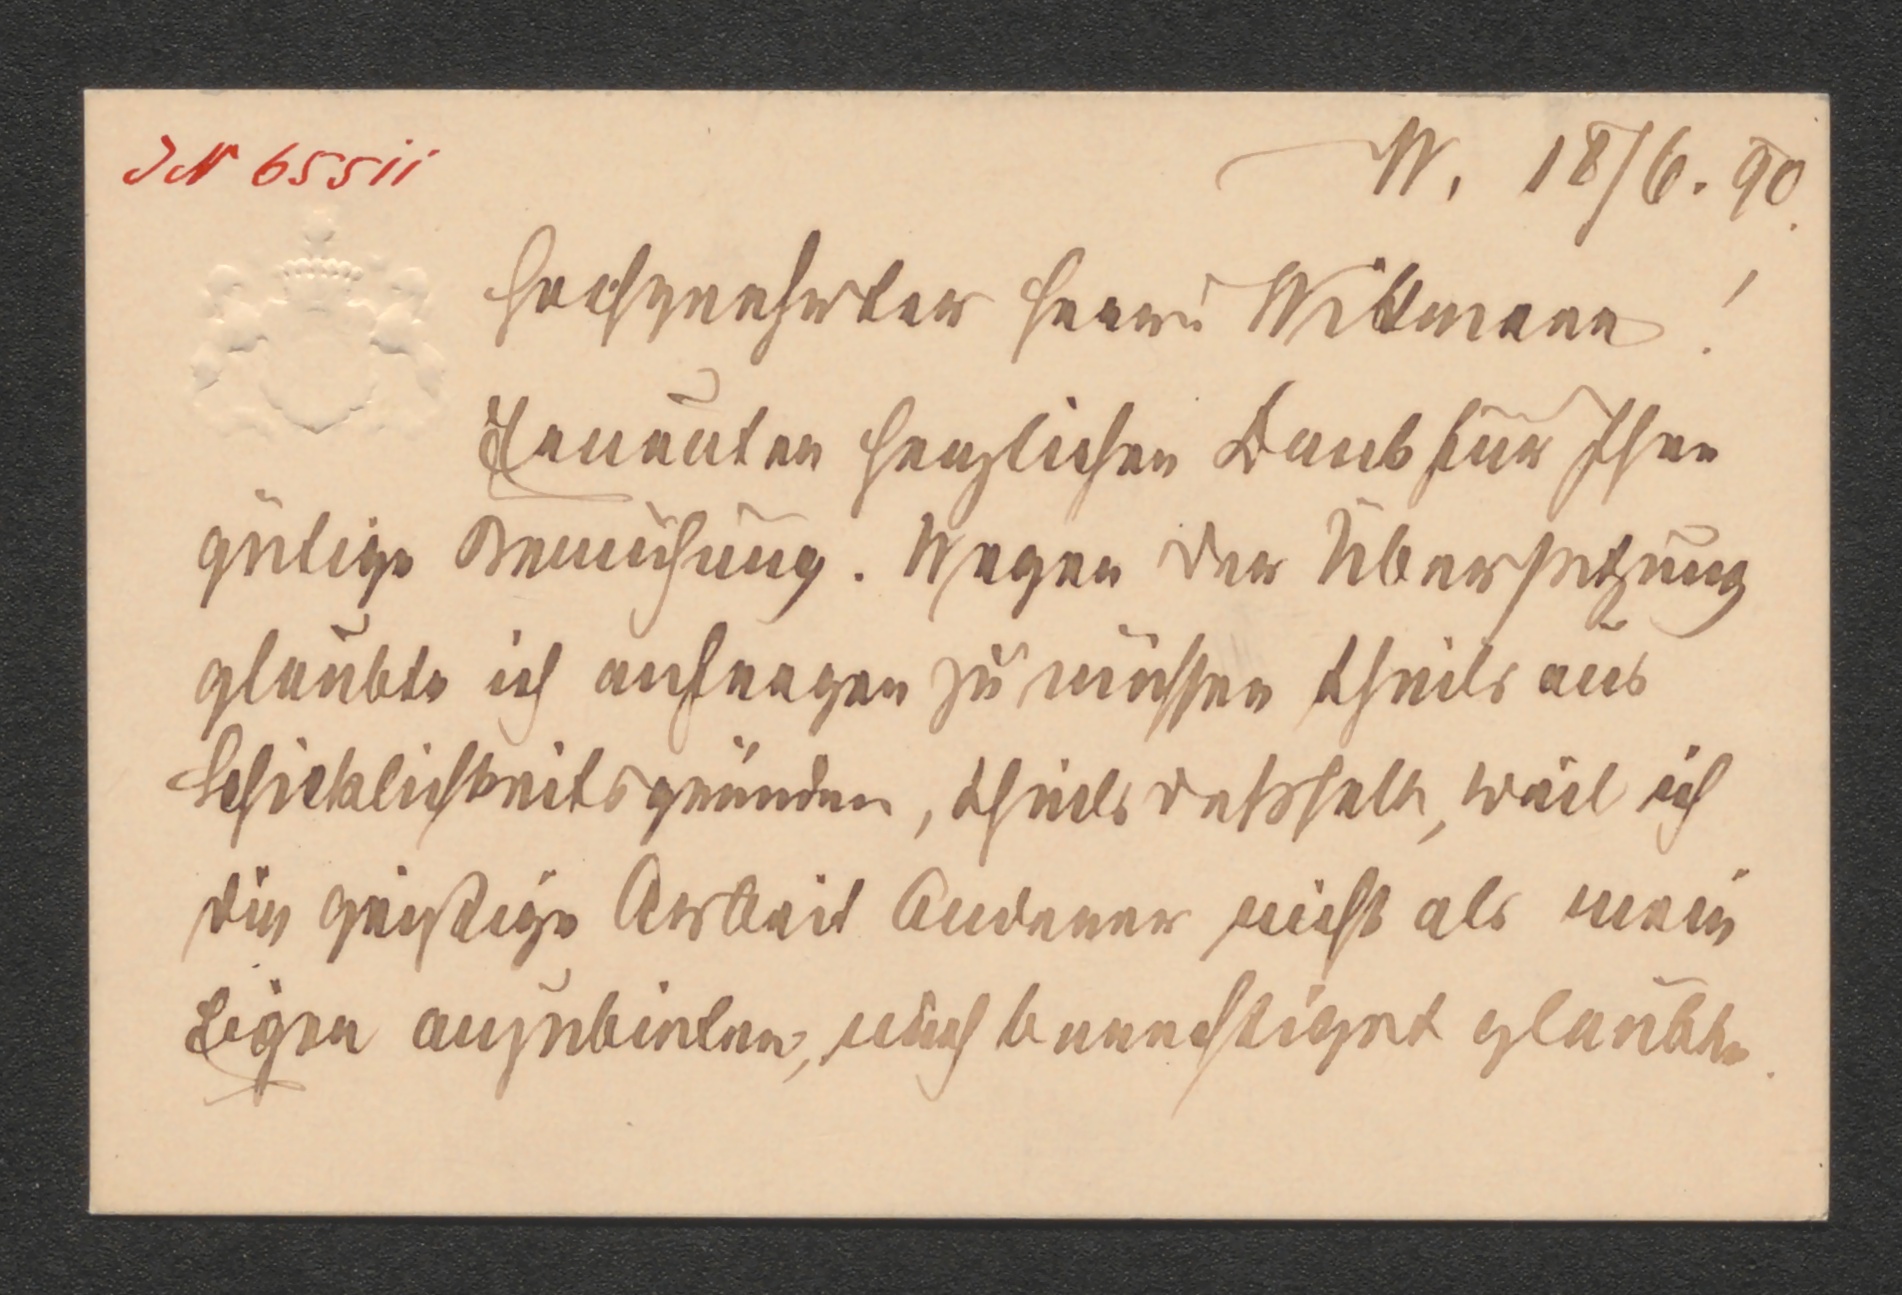 IN 65511
W. 18/6. 90.
Hochgeehrter Herr Wittmann!
Erneuten herzlichen Dank für Ihre
gütige Bemühung. Wegen der Übersetzung
glaubte ich anfragen zu müssen theils aus
Schicklichkeitsgründen, theils deßhalb, weil ich
die geistige Arbeit Anderer nicht als mein
Eigen anzubieten, mich berechtiget glaubte.